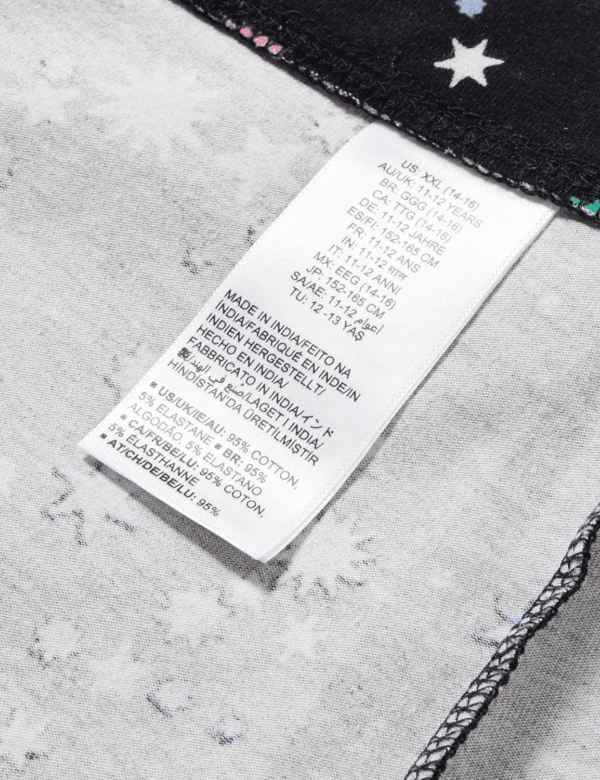 US: XXL (14-16)
AU/UK: 11-12 YEARS
BR: GGG (14-16)
CA: TTG (14-16)
DE: 11-12 JAHRE
ES/FI: 152-165 CM
FR: 11-12 ANS
IN: 11-12 साल
IT: 11-12 ANNI
MX: EEG (14-16)
JP: 152-165 CM
SA/AE: 11-12 أعوام
TU: 12 -13 YAŞ
MADE IN INDIA/FEITO NA
ÍNDIA/FABRIQUÉ EN INDE/IN
INDIEN HERGESTELLT/
HECHO EN INDIA/
FABBRICATO IN INDIA/インド
製/صنع في الهند/LAGET I INDIA/
HİNDİSTAN'DA ÜRETİLMİŞTİR
▪ US/UK/IE/AU: 95% COTTON,
5% ELASTANE ▪ BR: 95%
ALGODÃO, 5% ELASTANO
▪ CA/FR/BE/LU: 95% COTON,
5% ÉLASTHANNE
▪ AT/CH/DE/BE/LU: 95%